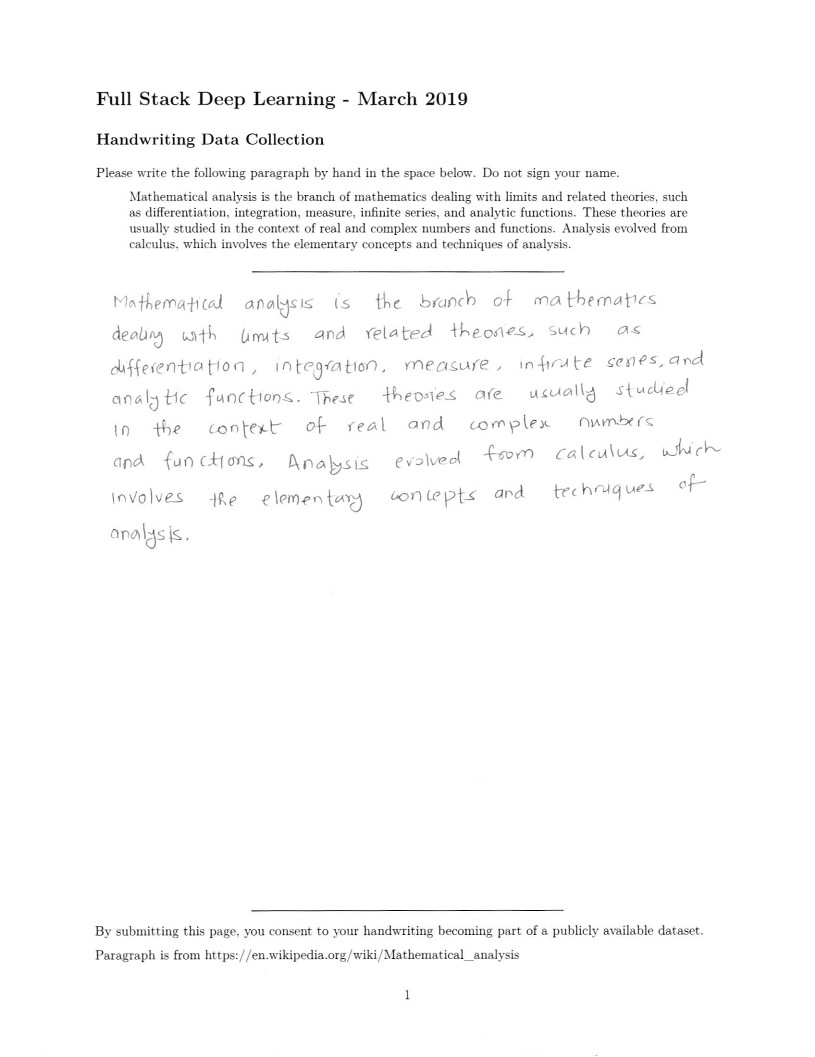 Full Stack Deep Learning - March 2019
Handwriting Data Collection
Please write the following paragraph by hand in the space below. Do not sign your name.
Mathematical analysis is the branch of mathematics dealing with limits and related theories, such
as differentiation, integration, measure, infinite series, and analytic functions. These theories are
usually studied in the context of real and complex numbers and functions. Analysis evolved from
calculus, which involves the elementary concepts and techniques of analysis.
Mathematical analysis is the branch of mathematics
dealing with limits and related theories, such as
differentiation, integration, measure, infinite series, and
analytic functions. These theories are usually studied
in the context of real and complex numbers
and functions. Analysis evolved from calculus, which
involves the elementary concepts and techniques of
analysis.
By submitting this page, you consent to your handwriting becoming part of a publicly available dataset.
Paragraph is from https://en.wikipedia.org/wiki/Mathematical_analysis
1